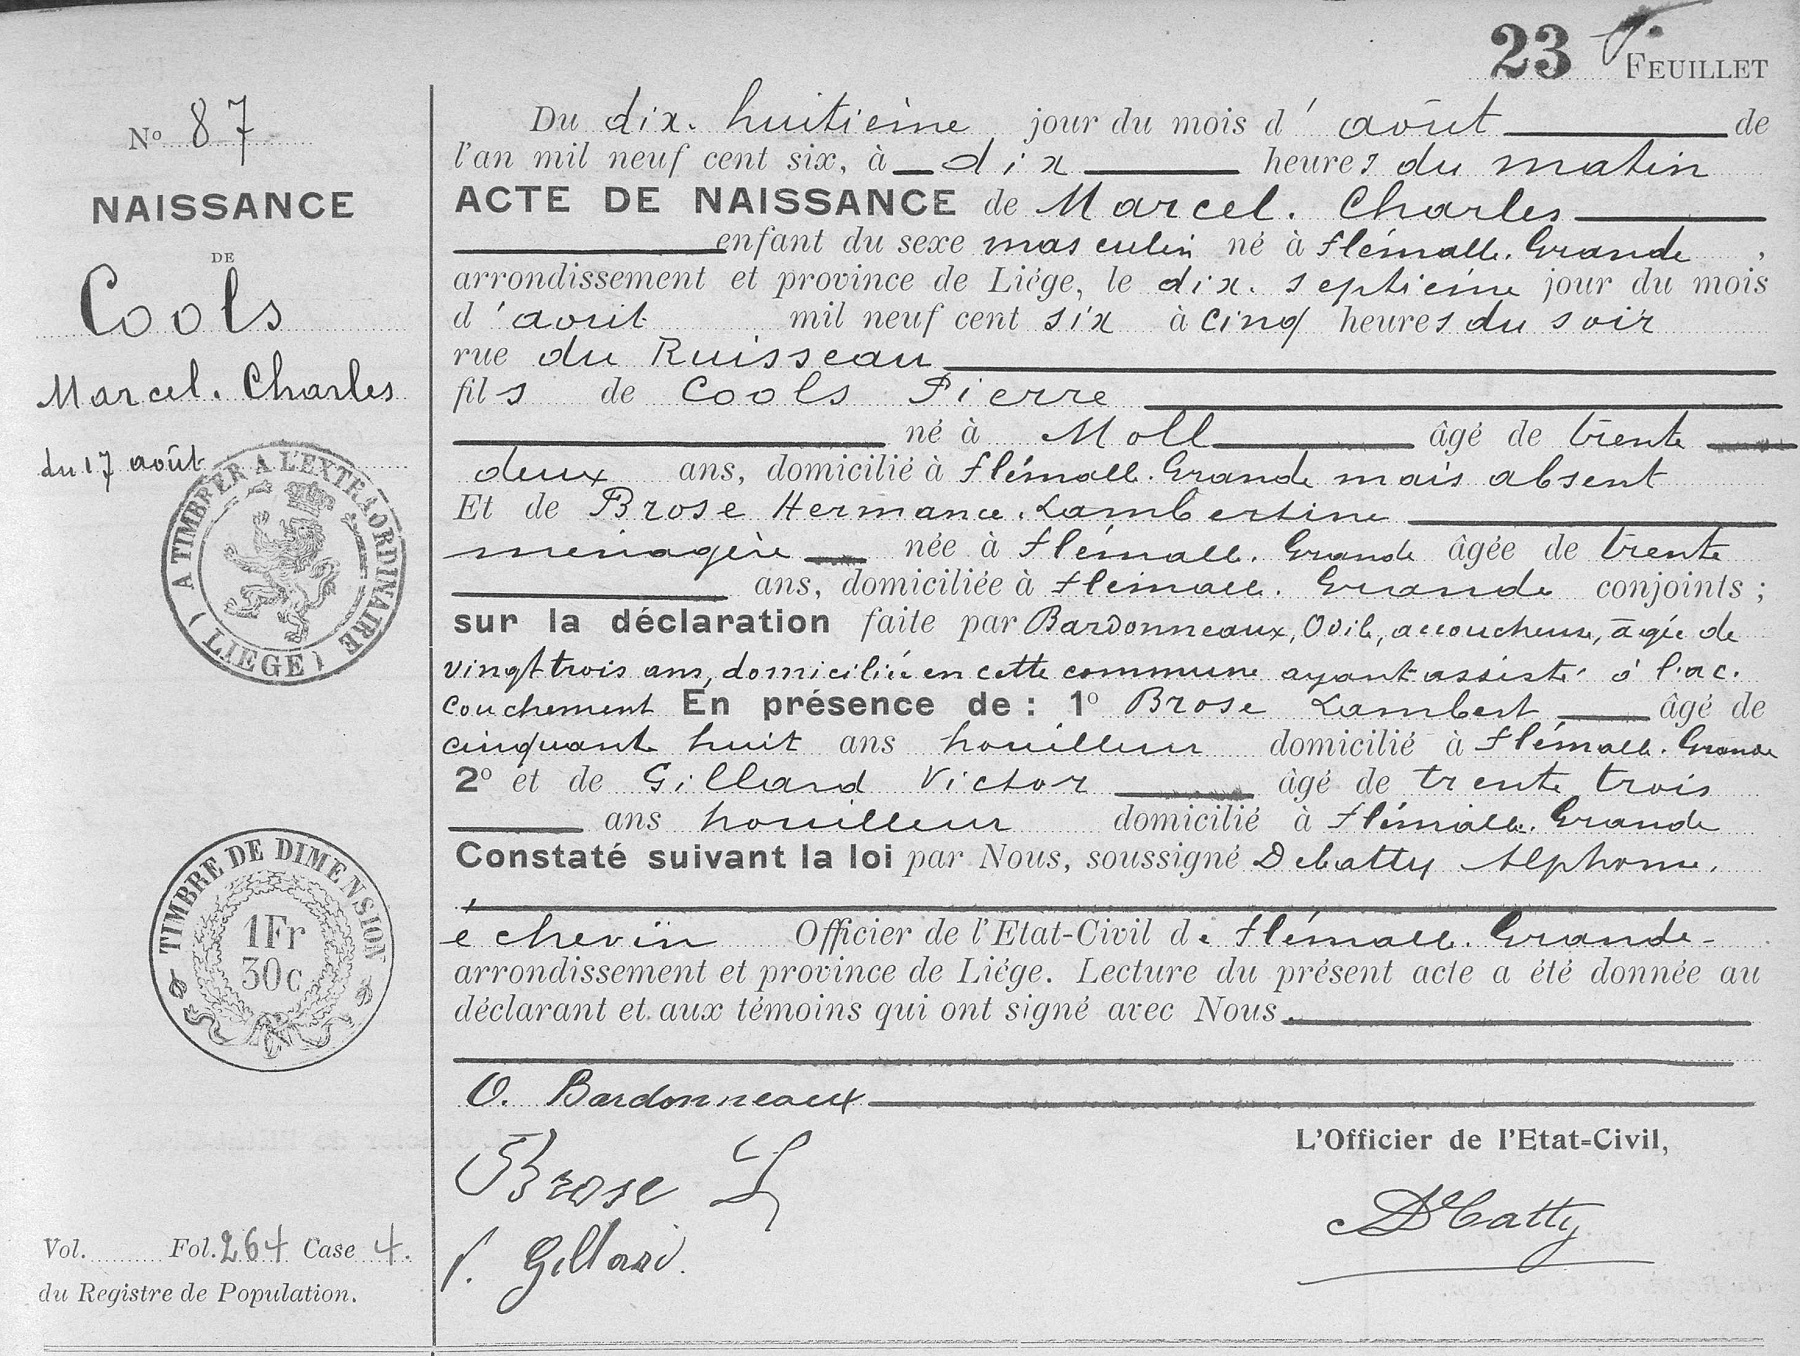 23 FEUILLET
N° 87
NAISSANCE
DE
Cools
Marcel. Charles
du 17 août
A TIMBRER A L'EXTRAORDINAIRE
(LIEGE)
TIMBRE DE DIMENSION
1Fr
30c
Vol. Fol. 264 Case 4.
du Registre de Population.
Du dix. huitième jour du mois d' août de
l'an mil neuf cent six, à dix heures du matin
ACTE DE NAISSANCE de Marcel. Charles
enfant du sexe masculin né à Flémalle. Grande,
arrondissement et province de Liége, le dix. septième jour du mois
d'août mil neuf cent six à cinq heures du soir
rue du Ruisseau
fils de Cools Pierre
né à Moll âgé de trente
deux ans, domicilié à Flémalle. Grande mais absent
Et de Brose Hermance. Lambertine
ménagère née à Flémalle. Grande âgée de trente
ans, domiciliée à Flémalle. Grande conjoints ;
sur la déclaration faite par Bardonneaux, Odile, accoucheuse, âgée de
vingt trois ans, domiciliée en cette commune ayant assisté à l'ac.
couchement En présence de : 1° Brose Lambert âgé de
cinquante huit ans houilleur domicilié à Flémalle. Grande
2° et de Gilliard Victor âgé de trente trois
ans houilleur domicilié à Flémalle. Grande
Constaté suivant la loi par Nous, soussigné Debatty Alphonse.
échevin Officier de l'Etat-Civil de Flémalle. Grande-
arrondissement et province de Liége. Lecture du présent acte a été donnée au
déclarant et aux témoins qui ont signé avec Nous.
O. Bardonneaux
L'Officier de l'Etat-Civil,
Brose L
Debatty